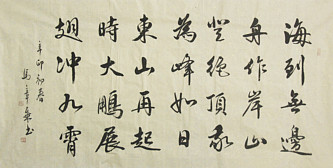 海到無邊
舟作岸山
登絕頂我
為峰如日
東山再起
時大鵬展
翅沖九霄
辛卯初春